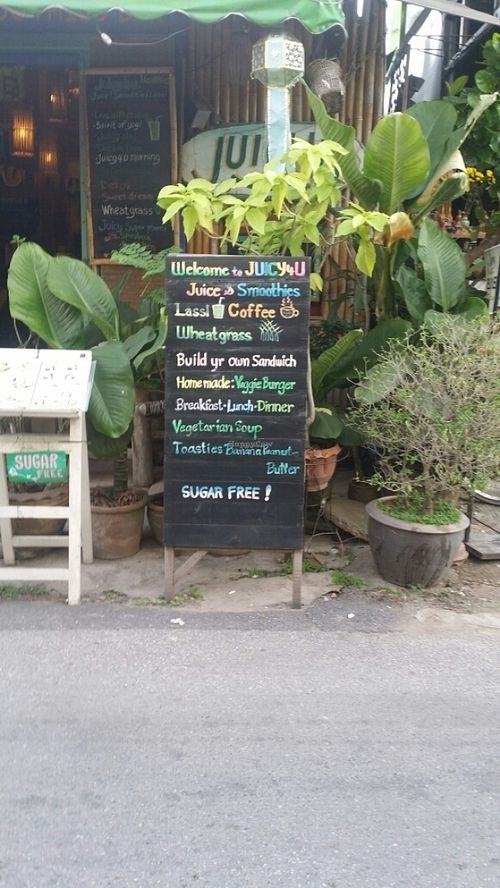 JUICY
Spirit of yoga
Juicy4U morning
Detox
Sweet dream
Wheatgrass
Juicy
Welcome to JUICY4U
Juice & Smoothies
Lassi Coffee
Wheatgrass
Build yr own Sandwich
Home made: Veggie Burger
Breakfast·Lunch·Dinner
Vegetarian Soup
Toasties Banana Peanut-
Butter
SUGAR FREE!
SUGAR
FREE